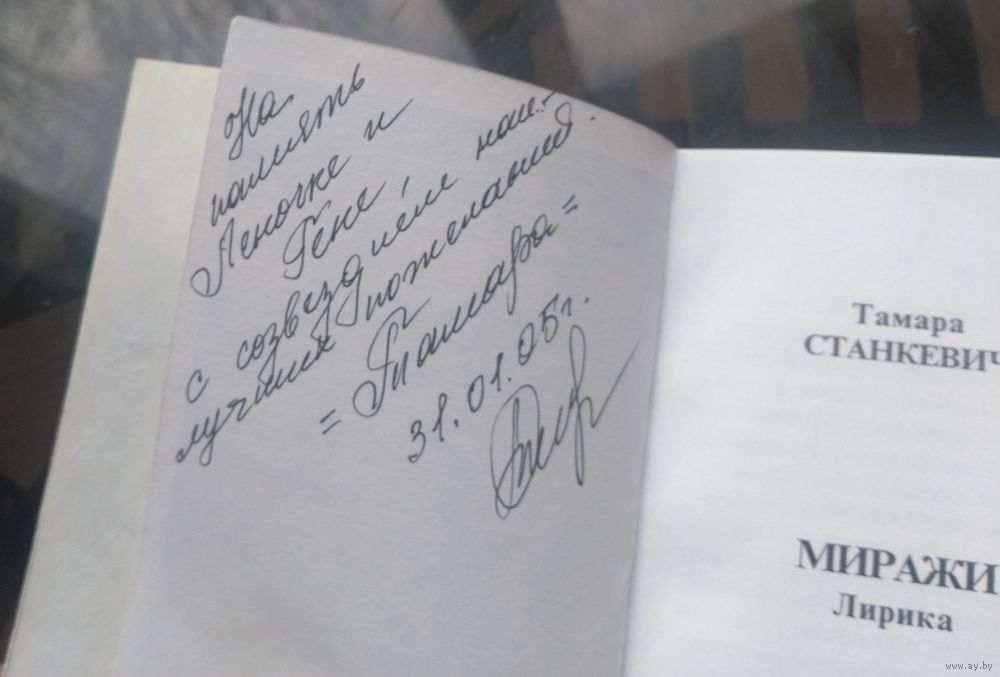 На
память
Леночке и
Гене,
с созвездием наи-
лучших пожеланий.
= Тамара =
31.01.05г.
Тамара
СТАНКЕВИЧ
МИРАЖИ
Лирика
www.ay.by